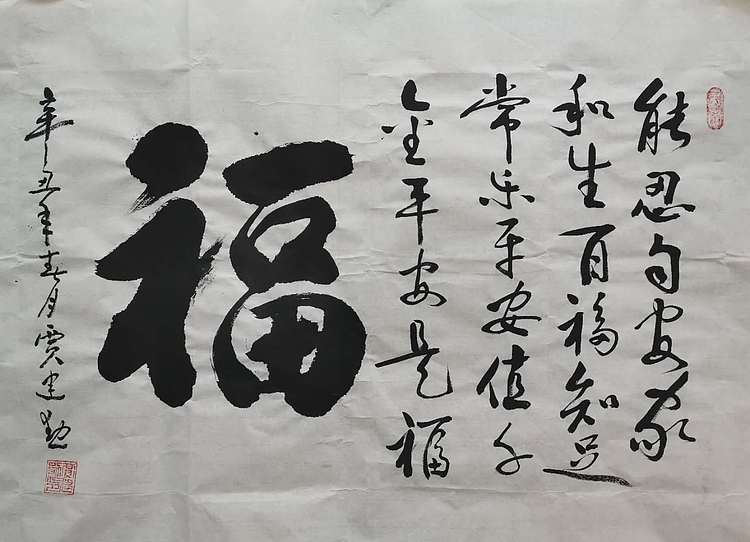 能忍自安家
和生百福知足
常乐平安值千
金平安是福
福
辛丑年春月贾建